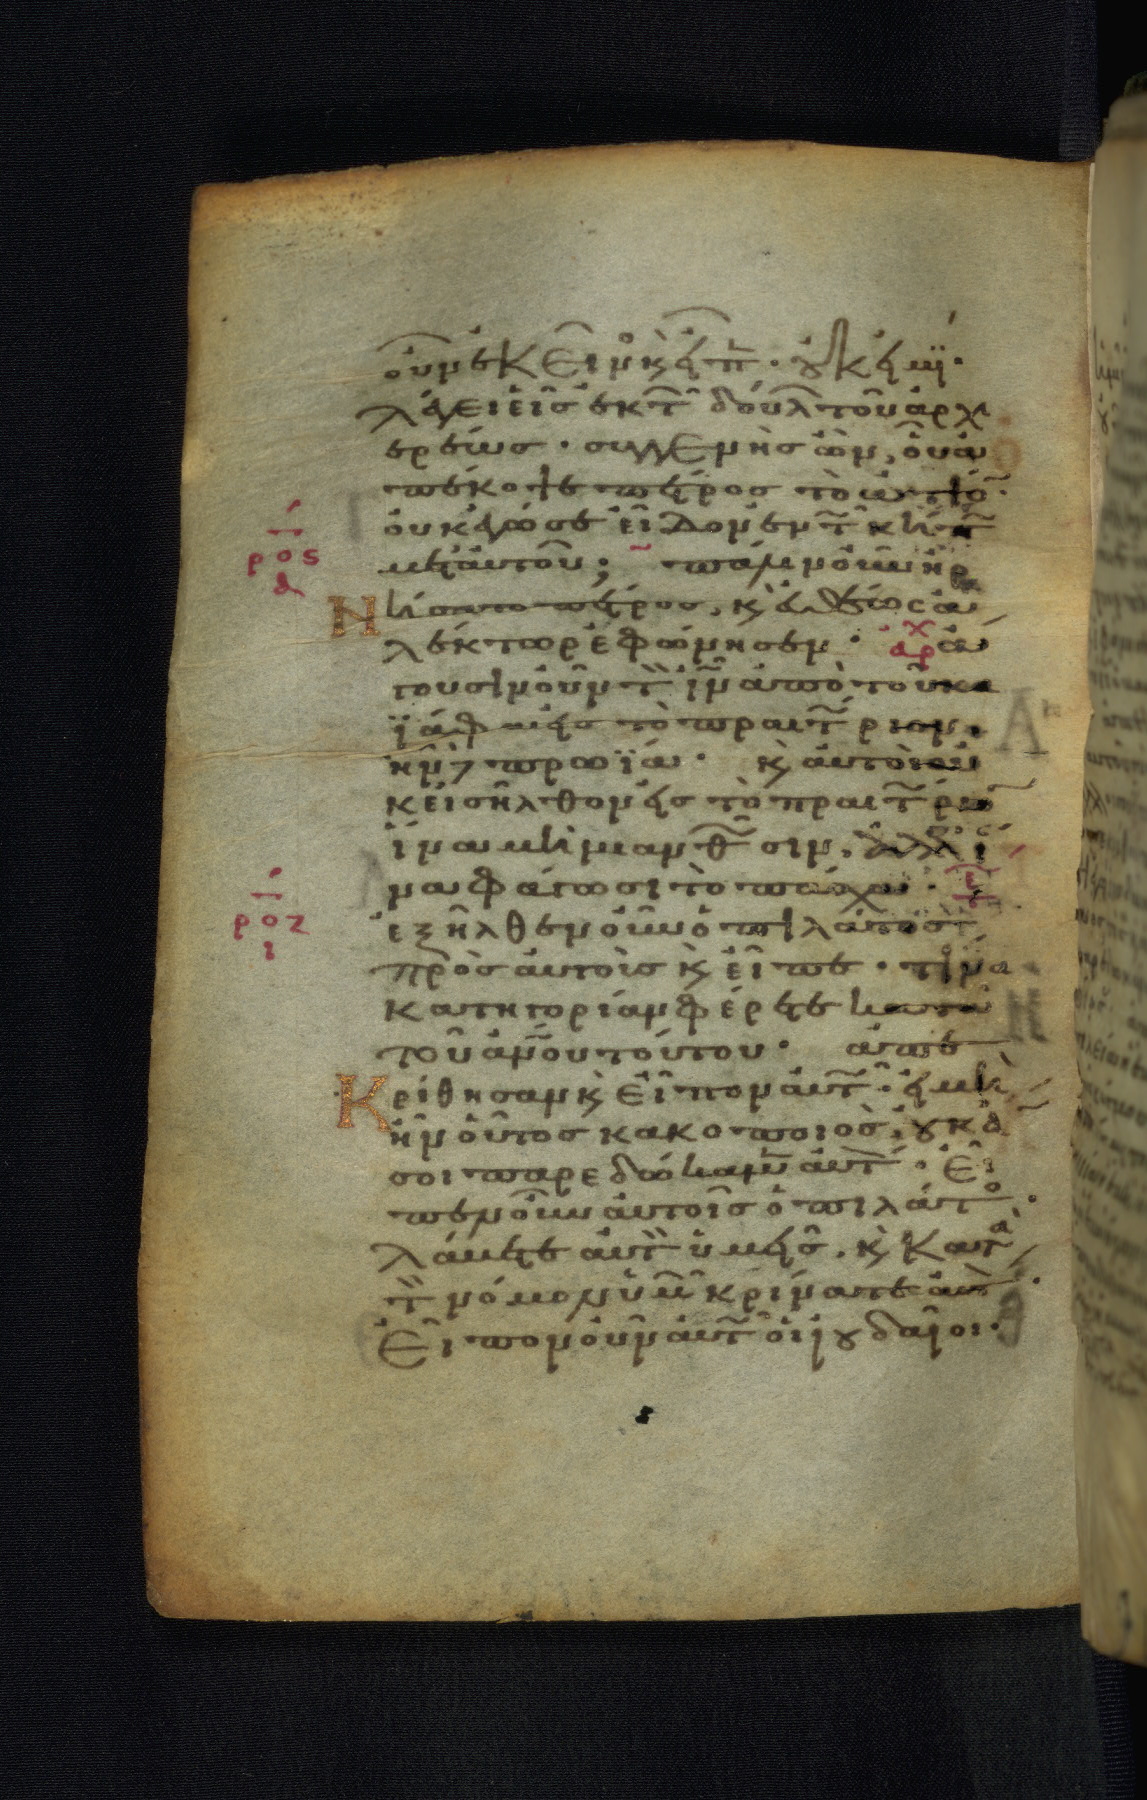 οὖν ἐκεῖνος καὶ εἶπεν· οὐκ εἰμί·
λέγει εἷς ἐκ τῶν δούλων τοῦ ἀρχι
ερέως· συγγενὴς ὢν, οὗ ἀ
πέκοψε πέτρος τὸ ὠτίον·
οὐκ ἐγώ σε εἶδον ἐν τῷ κήπῳ
μετ' αὐτοῦ; πάλιν οὖν ἠρ
νήσατο πέτρος, καὶ εὐθέως ἀ
λέκτωρ ἐφώνησεν· αρχ ἄ
γουσιν οὖν τὸν ἰν ἀπὸ τοῦ κα
ϊάφα εἰς τὸ πραιτώριον,
ἦν δὲ πρωΐα· καὶ αὐτοὶ οὐ
κ εἰσῆλθον εἰς τὸ πραιτώριον
ἵνα μὴ μιανθῶσιν, ἀλλ' ἵ
να φάγωσι τὸ πάσχα·
ἐξῆλθεν οὖν ὁ πιλάτος
πρὸς αὐτοὺς καὶ εἶπε· τίνα
κατηγορίαν φέρετε κατὰ
τοῦ ἀνου τούτου· ἀπε
κρίθησαν καὶ εἶπον αὐτῷ· εἰ μὴ
ἦν οὗτος κακοποιὸς, οὐκ ἄν
σοι παρεδώκαμεν αὐτόν· εἶ
πεν οὖν αὐτοῖς ὁ πιλάτος·
λάβετε αὐτὸν ὑμεῖς, καὶ κατὰ
τὸν νόμον ὑμῶν κρίνατε αὐτόν·
εἶπον οὖν αὐτῷ οἱ ἰουδαῖοι·
ι
ρος
α
ι
ροζ
ι